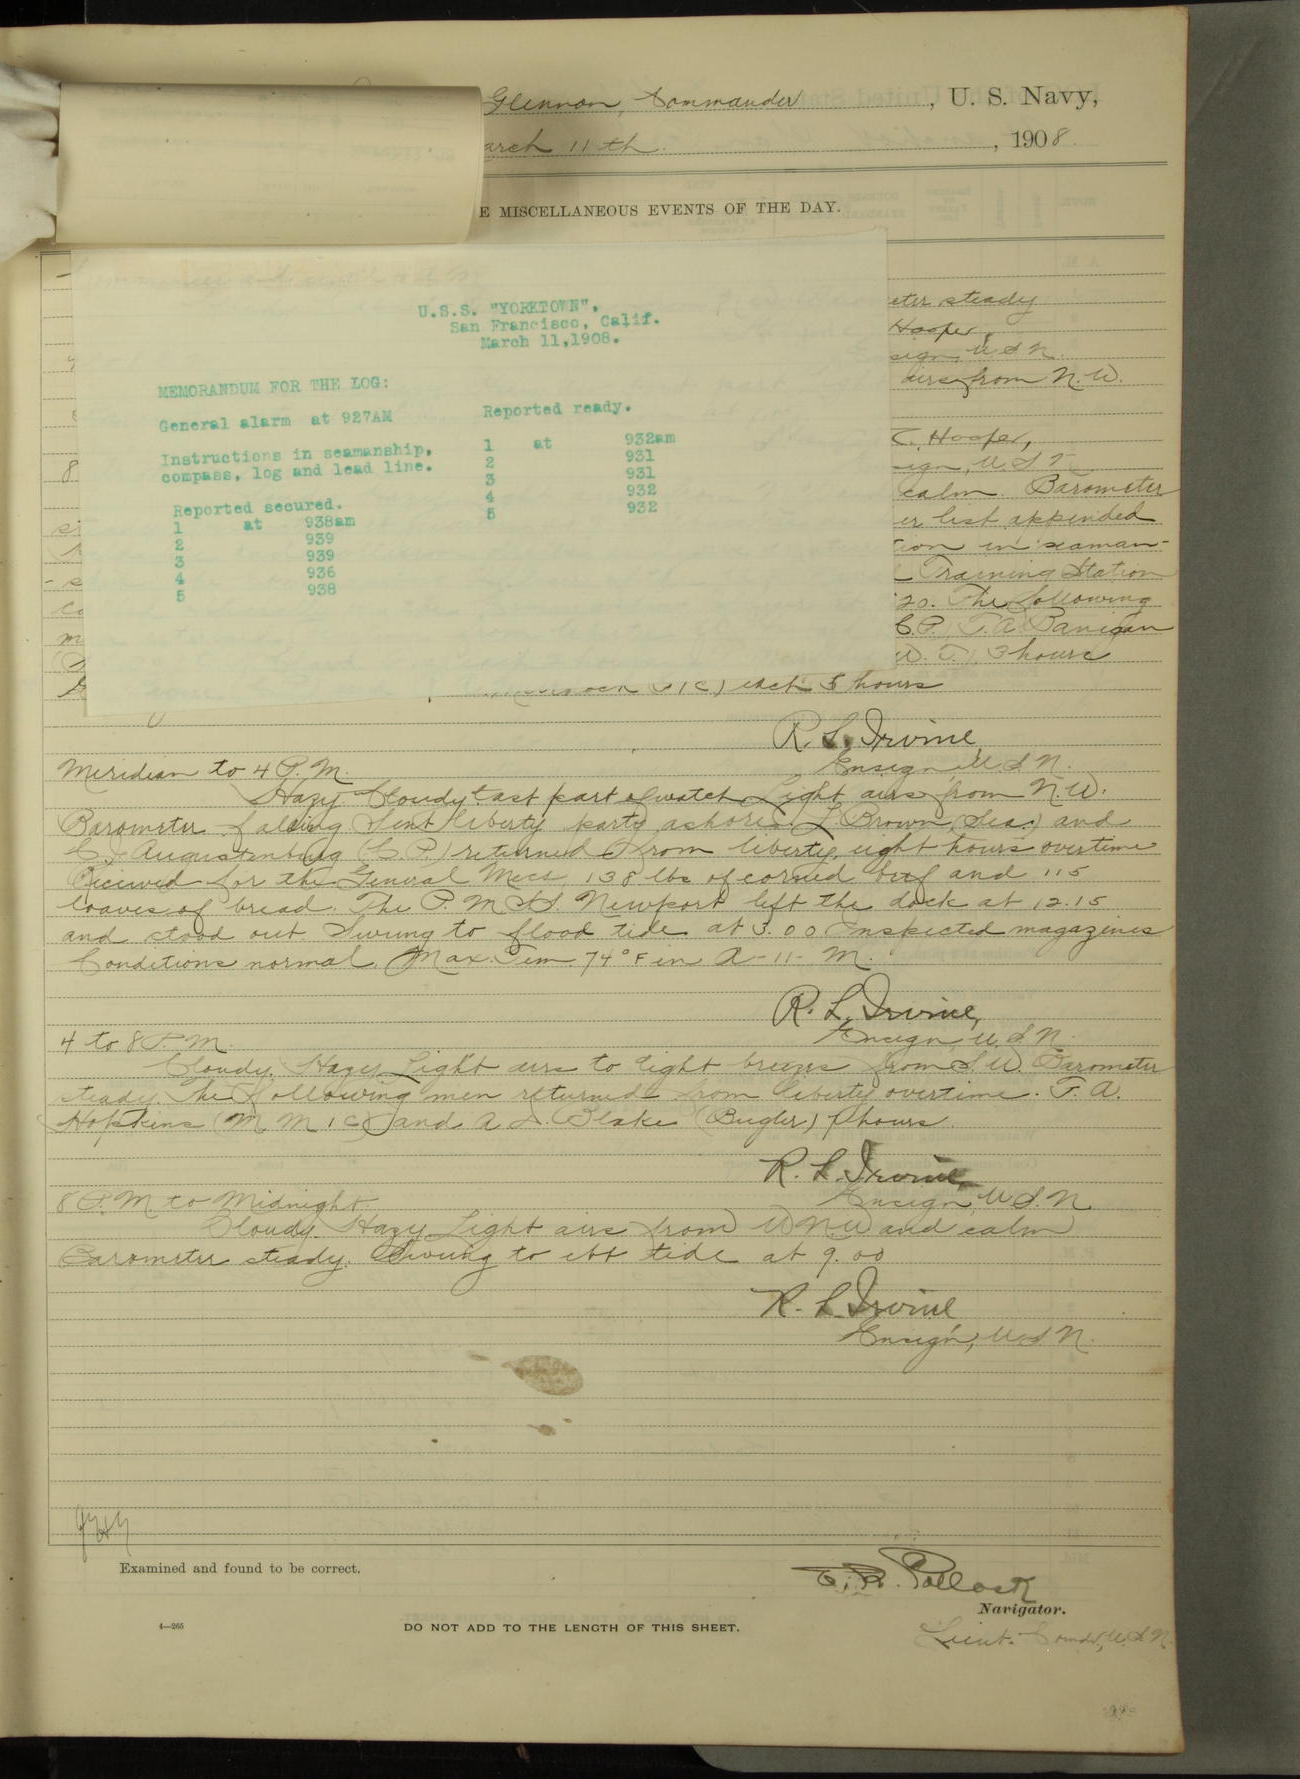 Glennon, Commander, U. S. Navy,
arch 11th., 1908.
E MISCELLANEOUS EVENTS OF THE DAY.
U.S.S. "YORKTOWN",
San Francisco, Calif.
March 11,1908.
MEMORANDUM FOR THE LOG:
General alarm at 927AM
Instructions in seamanship,
compass, log and lead line.
Reported secured.
1 at 938am
2 939
3 939
4 936
5 938
Reported ready.
1 at 932am
2 931
3 931
4 932
5 932
eter steady
Hooper,
sign, U S N.
airs from N.W.
C. Hooper,
sign, U.S.N
8
calm. Barometer
er list appended
tion in seaman-
Training Station
20. The following
C.P., T.A. Banigan
W.T.) 3 hours
1C) each 5 hours
R. L. Irvine,
Ensign, U S N.
Meridian to 4 P.M.
Hazy Cloudy last part of watch. Light airs from N.W.
Barometer falling Sent liberty party ashore. L. Brown, (Sea.) and
C. J. Augustenburg (C.P.) returned from liberty, eight hours overtime
Received for the General Mess, 138 lbs of corned beef and 115
loaves of bread. The P.M.S.S. Newport left the dock at 12.15
and stood out Swung to flood tide at 3.00 Inspected magazines
Conditions normal. Max. Tem. 74°F in A-11-M.
R. L. Irvine,
Ensign, U.S.N.
4 to 8 P.M.
Cloudy. Hazy Light airs to light breezes from S.W. Barometer
steady. The following men returned from liberty overtime. T. A.
Hopkins (M M 1C) and A. L. Blake (Bugler) hours.
R. L. Irvine,
Ensign, U.S.N.
8 P.M. to Midnight.
Cloudy. Hazy Light airs from W N.W and calm
Barometer steady. Swung to ebb tide at 9.00
R. L. Irvine
Ensign, U.S.N.
Examined and found to be correct.
E. R. Pollock
Navigator.
4—265
DO NOT ADD TO THE LENGTH OF THIS SHEET.
Lieut. Comdr, U.S.N.